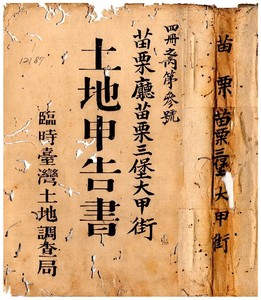 四冊之內第參號
苗栗廳苗栗三堡大甲街
土地申告書
臨時臺灣土地調查局
12187
苗栗苗栗三堡大甲街